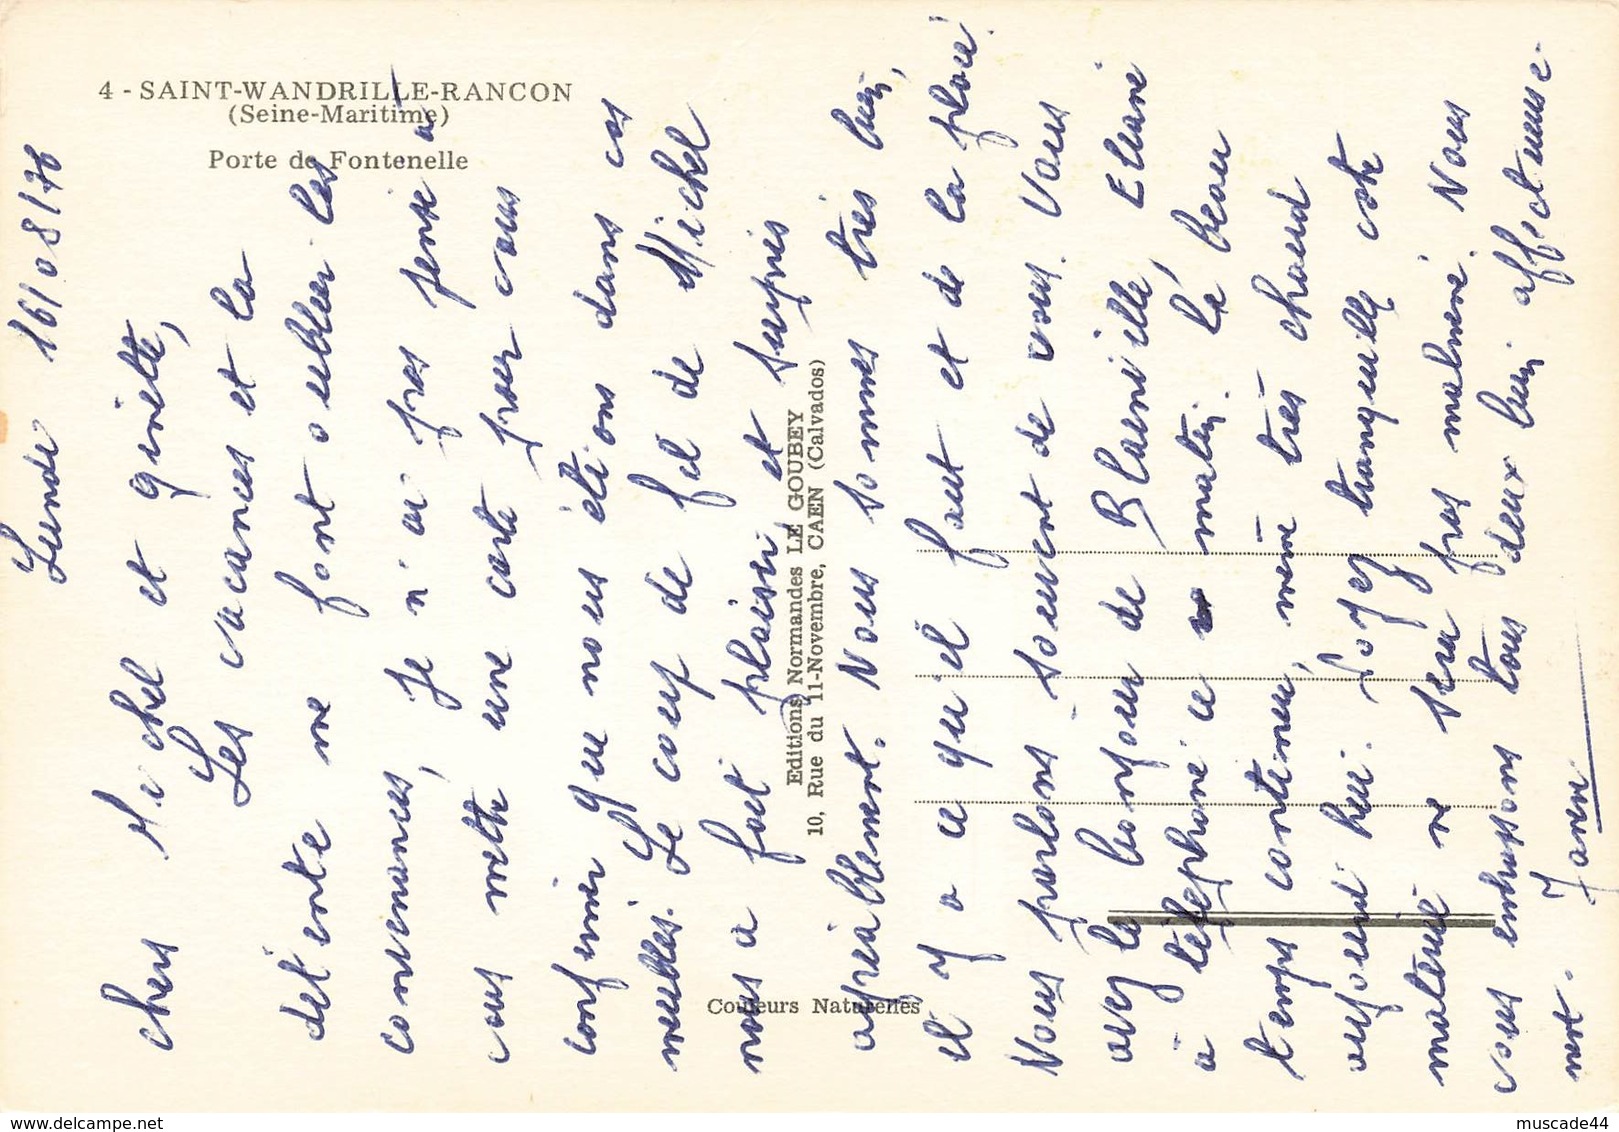 4 - SAINT-WANDRILLE-RANCON
(Seine-Maritime)
Porte de Fontenelle
Lundi 16/08/76
Chers Michel et Ginette,
Les vacances et la
détente ne font oublier les
convenances, Je n'ai pas pensé à
vous mettre une carte pour vous
confirmer que nous étions dans ces
meubles. Le coup de fil de Michel
nous a fait plaisir et surpris
agréablement. Nous sommes très bien,
il y a ce qu'il faut et de la place.
Nous parlons souvent de vous. Vous
avez le bonjour de Blainville, Eliane
a téléphoné ce matin. Le beau
temps continue, même très chaud
aujourd'hui. Soyez tranquille côté
matériel ne sera pas malmené. Nous
vous embrassons tous deux bien affectueuse-
ment.
Editions Normandes LE GOUBEY
10, Rue du 11-Novembre, CAEN (Calvados)
Couleurs Naturelles
www.delcampe.net
muscade44